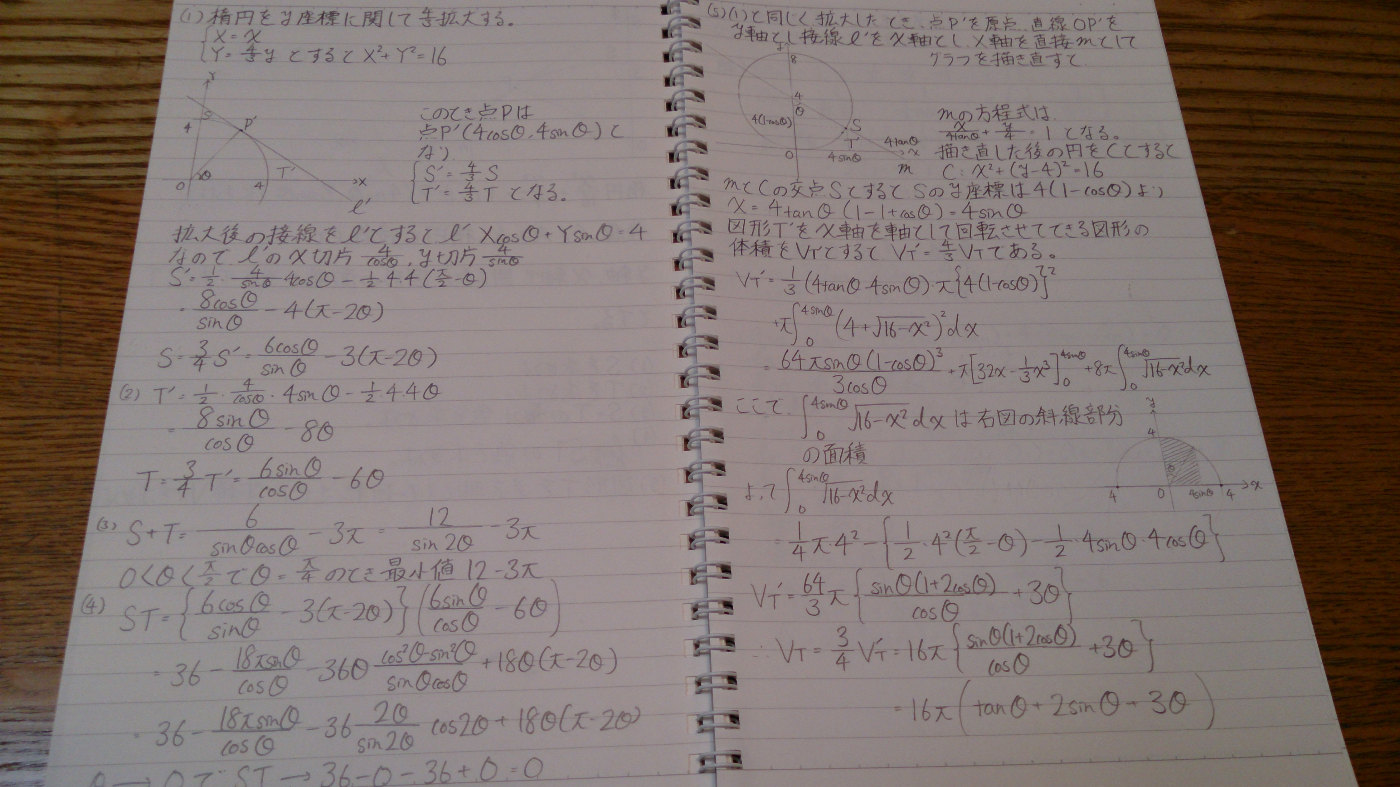 (1) 楕円をy座標に関して4/3拡大する。
{X = x
Y = 4/3 y とすると X²+Y²=16
Y
S'
P'
4
このとき点Pは
点P'(4cosθ, 4sinθ)と
なり
{S' = 4/3 S
T' = 4/3 T となる。
θ
T'
0
4
x
l'
拡大後の接線をl'とすると l' Xcosθ+Ysinθ=4
なので l'のx切片 4/cosθ, y切片 4/sinθ
S' = 1/2 · 4/sinθ · 4cosθ - 1/2 4·4(π/2 - θ)
= 8cosθ/sinθ - 4(π-2θ)
S = 3/4 S' = 6cosθ/sinθ - 3(π-2θ)
(2) T' = 1/2 · 4/cosθ · 4sinθ - 1/2 · 4·4θ
= 8sinθ/cosθ - 8θ
T = 3/4 T' = 6sinθ/cosθ - 6θ
(3) S+T = 6/sinθcosθ - 3π = 12/sin2θ - 3π
0<θ<π/2で θ=π/4 のとき最小値 12-3π
(4) ST = {6cosθ/sinθ - 3(π-2θ)}(6sinθ/cosθ - 6θ)
= 36 - 18πsinθ/cosθ - 36θ cos²θ-sin²θ/sinθcosθ + 18θ(π-2θ)
= 36 - 18πsinθ/cosθ - 36 2θ/sin2θ cos2θ + 18θ(π-2θ)
θ→0で ST→36-0-36+0=0
(5) (1)と同じく拡大したとき 点P'を原点 直線OP'を
y軸とし接線l'をx軸とし、X軸を直線mとして
グラフを描き直すて
y
8
4
θ
4(1-cosθ)
S
T'
4tanθ
x
0
4sinθ
m
mの方程式は
x/4tanθ + y/4 = 1 となる。
描き直した後の円をCとすると
C: x²+(y-4)²=16
mとCの交点SとするとSのy座標は4(1-cosθ)より
x = 4tanθ(1-1+cosθ) = 4sinθ
図形T'をx軸を軸として回転させてできる図形の
体積をVT'とすると VT' = 4/3 VTである。
VT' = 1/3 (4tanθ-4sinθ)·π{4(1-cosθ)}²
+π∫₀^4sinθ (4+√16-x²)²dx
= 64πsinθ(1-cosθ)³/3cosθ + π[32x - 1/3x³]₀^4sinθ + 8π∫₀^4sinθ √16-x² dx
ここで ∫₀^4sinθ √16-x² dx は右図の斜線部分
の面積
y
4
θ
4
0
4sinθ
4
x
よって ∫₀^4sinθ √16-x² dx
= 1/4 π·4² - {1/2 · 4²(π/2 - θ) - 1/2 · 4sinθ · 4cosθ}
VT' = 64/3 π {sinθ(1+2cosθ)/cosθ + 3θ}
∴ VT = 3/4 VT' = 16π {sinθ(1+2cosθ)/cosθ + 3θ}
= 16π (tanθ + 2sinθ + 3θ)